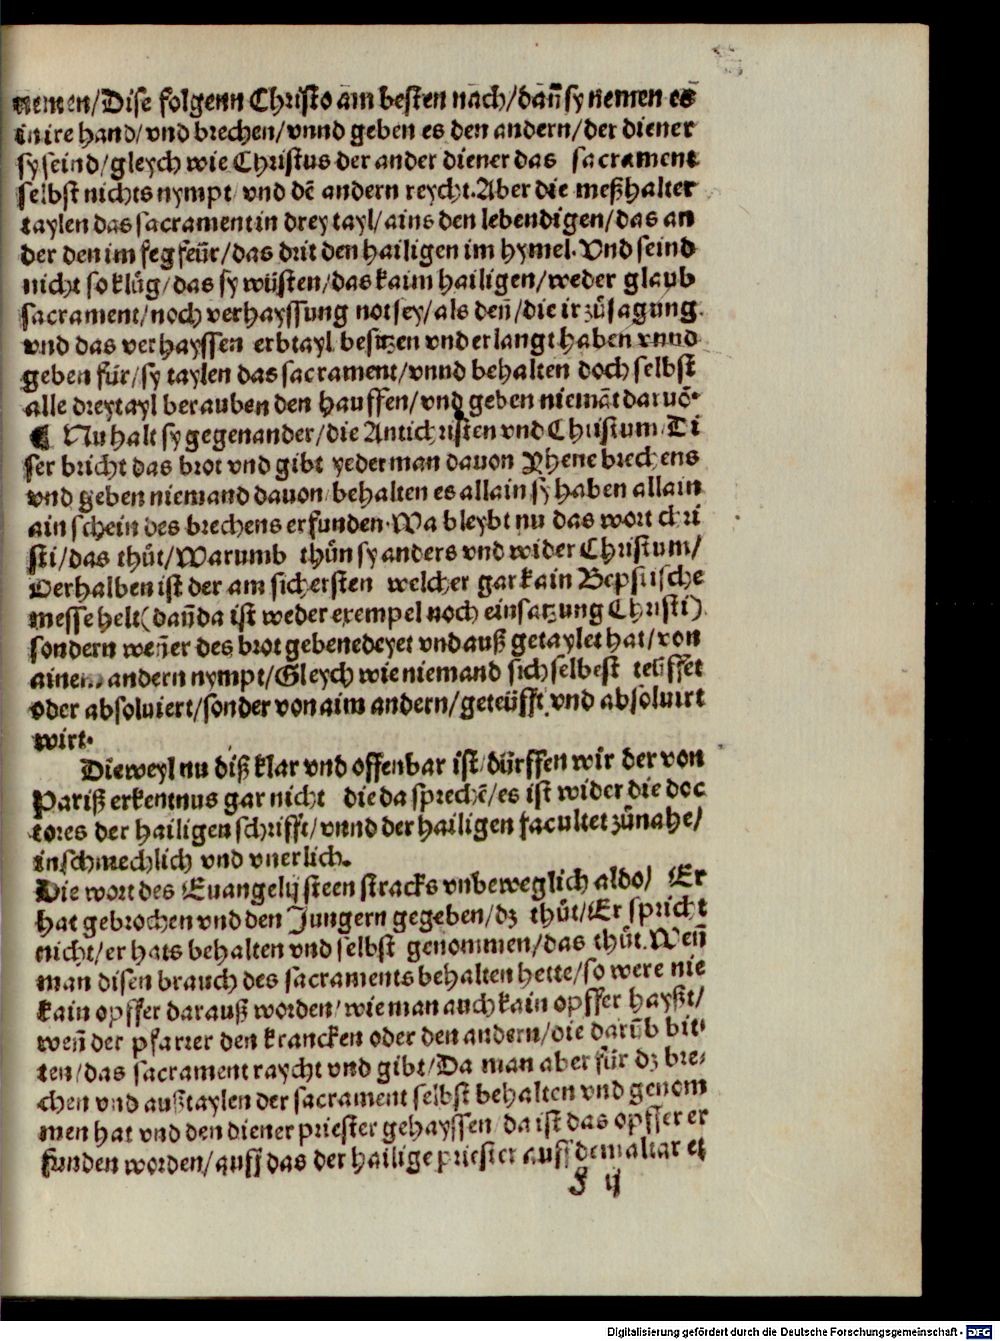 nemen/Dise folgenn Christo am besten nach/dañ sy nemen es
in ire hand/vnd brechen/vnnd geben es den andern/der diener
sy seind/gleych wie Christus der ander diener das sacrament
selbst nichts nympt/vnd dē andern reycht. Aber die meßhalter
taylen das sacrament in drey tayl/ains den lebendigen/das an
der den im fegfeür/das drit den hailigen im hymel. Vnd seind
nicht so klůg/das sy wüsten/das kaim hailigen/weder glaub
sacrament/noch verhayssung not sey/als den̄/die ir zůsagung
vnd das verhayssen erbtayl besitzen vnd erlangt haben vnnd
geben für/sy taylen das sacrament/vnnd behalten doch selbst
alle dreytayl berauben den hauffen/vnd geben niemāt daruō.
¶ Nu halt sy gegenander/die Antichristen vnd Christum/Di
ser bricht das brot vnd gibt yederman dauon Yhene brechens
vnd geben niemand dauon/behalten es allain sy haben allain
ain schein des brechens erfunden. Wa bleybt nu das wort chri
sti/das thůt/Warumb thůn sy anders vnd wider Christum/
Derhalben ist der am sichersten welcher gar kain Bepstische
messe helt (dañ da ist weder exempel noch einsatzung Christi)
sondern weñ er des brot gebenedeyet vnd auß getaylet hat/von
ainem andern nympt/Gleych wie niemand sich selbest teüffet
oder absoluiert/sonder von aim andern/geteüfft vnd absoluirt
wirt.
Dieweyl nu diß klar vnd offenbar ist/dürffen wir der von
Pariß erkentnus gar nicht die da sprechē/es ist wider die doc
tores der hailigen schrifft/vnnd der hailigen facultet zůnahe/
in schmechlich vnd vnerlich.
Die wort des Euangelij steen stracks vnbeweglich aldo/ Er
hat gebrochen vnd den Jungern gegeben/dz thůt/Er spricht
nicht/er hats behalten vnd selbst genommen/das thůt. Weñ
man disen brauch des sacraments behalten hette/so were nie
kain opffer darauß worden/wie man auch kain opffer hayßt/
weñ der pfarrer den krancken oder den andern/die darūb bit-
ten/das sacrament raycht vnd gibt/Da man aber für dz bre-
chen vnd außtaylen der sacrament selbst behalten vnd genom
men hat vnd den diener priester gehayssen/da ist das opffer er
funden worden/auff das der hailige priester auff dem altar et
F ij
Digitalisierung gefördert durch die Deutsche Forschungsgemeinschaft - DFG